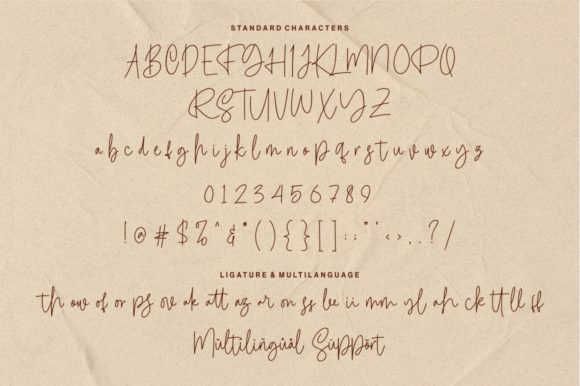 STANDARD CHARACTERS
ABCDEFGHIJKLMNOPQ
RSTUVWXYZ
a b c d e f g h i j k l m n o p q r s t u v w x y z
0 1 2 3 4 5 6 7 8 9
! @ # $ % ^ & * ( ) { } [ ] : ; " ' < > , . ? /
LIGATURE & MULTILANGUAGE
th ow of or ps ov ak att az ar on ss lee ii mm yl ah ck tt ll ff
Multilingual Support